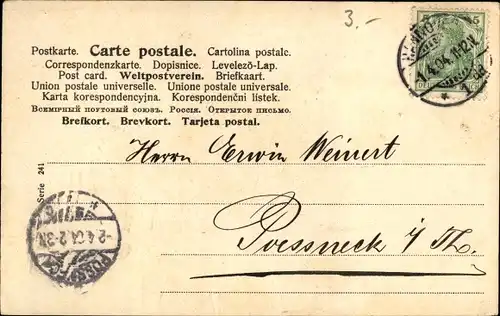 3.-
5 5
1.4.04. 11-12 N
Postkarte. Carte postale. Cartolina postale.
Correspondenzkarte. Dopisnice. Levelező-Lap.
Post card. Weltpostverein. Briefkaart.
Union postale universelle. Unione postale universale.
Karta korespondencyjna. Korespondenční lístek.
Всемирный почтовый союзъ. Россія. Открытое письмо.
Brefkort. Brevkort. Tarjeta postal.
Herrn Erwin Weinert
Poessneck i/Th.
Serie 241
-2.4.04. 2-3 N